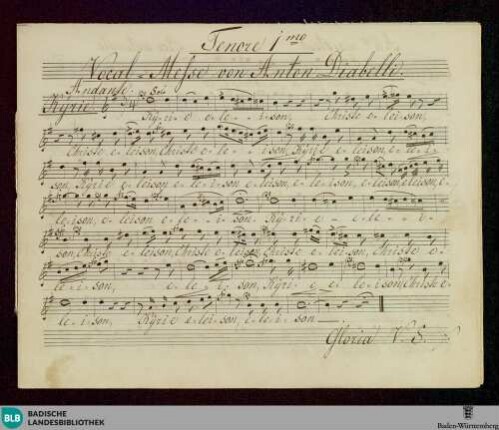 Tenore 1mo
Vocal-Messe von Anton Diabelli.
Andante. Solo
Kyrie
Kyrie e-le-i-son, Christe e-leison,
Christe e-leison, Christe e-le-i-son, Kyrie e-leison, e-le-i-
son, Kyrie e-leison e-le-i-son e-leison, e-le-i-son, e-leison, e-leison, e-
leison, e-leison e-le-i-son Kyri-e e-le-i-
son, Christe e-leison, Christe e-leison, Christe e-lei-son, Christe e-
le-i-son, e-le-i-son, Kyri-e e-le-ison, Christe e-
le-i-son, Kyrie e-lei-son, e-le-i-son.
Gloria V. S.
BLB BADISCHE
LANDESBIBLIOTHEK
Baden-Württemberg